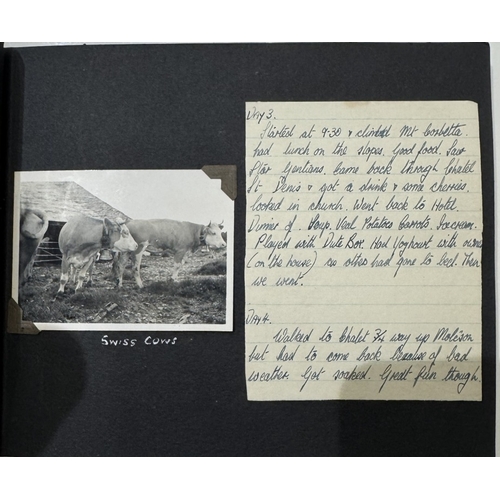 SWISS COWS
DAY 3.
Started at 9.30 & climbed Mt Corbetta.
Had lunch on the slopes. Good food. Saw
Star Gentians. Came back through Chatel
St. Denis & got a drink & some cherries.
looked in church. Went back to Hotel.
Dinner of. Soup. Veal Potatoes Carrots. Icecream.
Played with Dute Box. Had Joghurt with owner
(on the house) as others had gone to bed. Then
we went.
DAY 4.
Walked to Chalet 3/4 way up Moléson
but had to come back because of bad
weather. Got soaked. Great fun though.